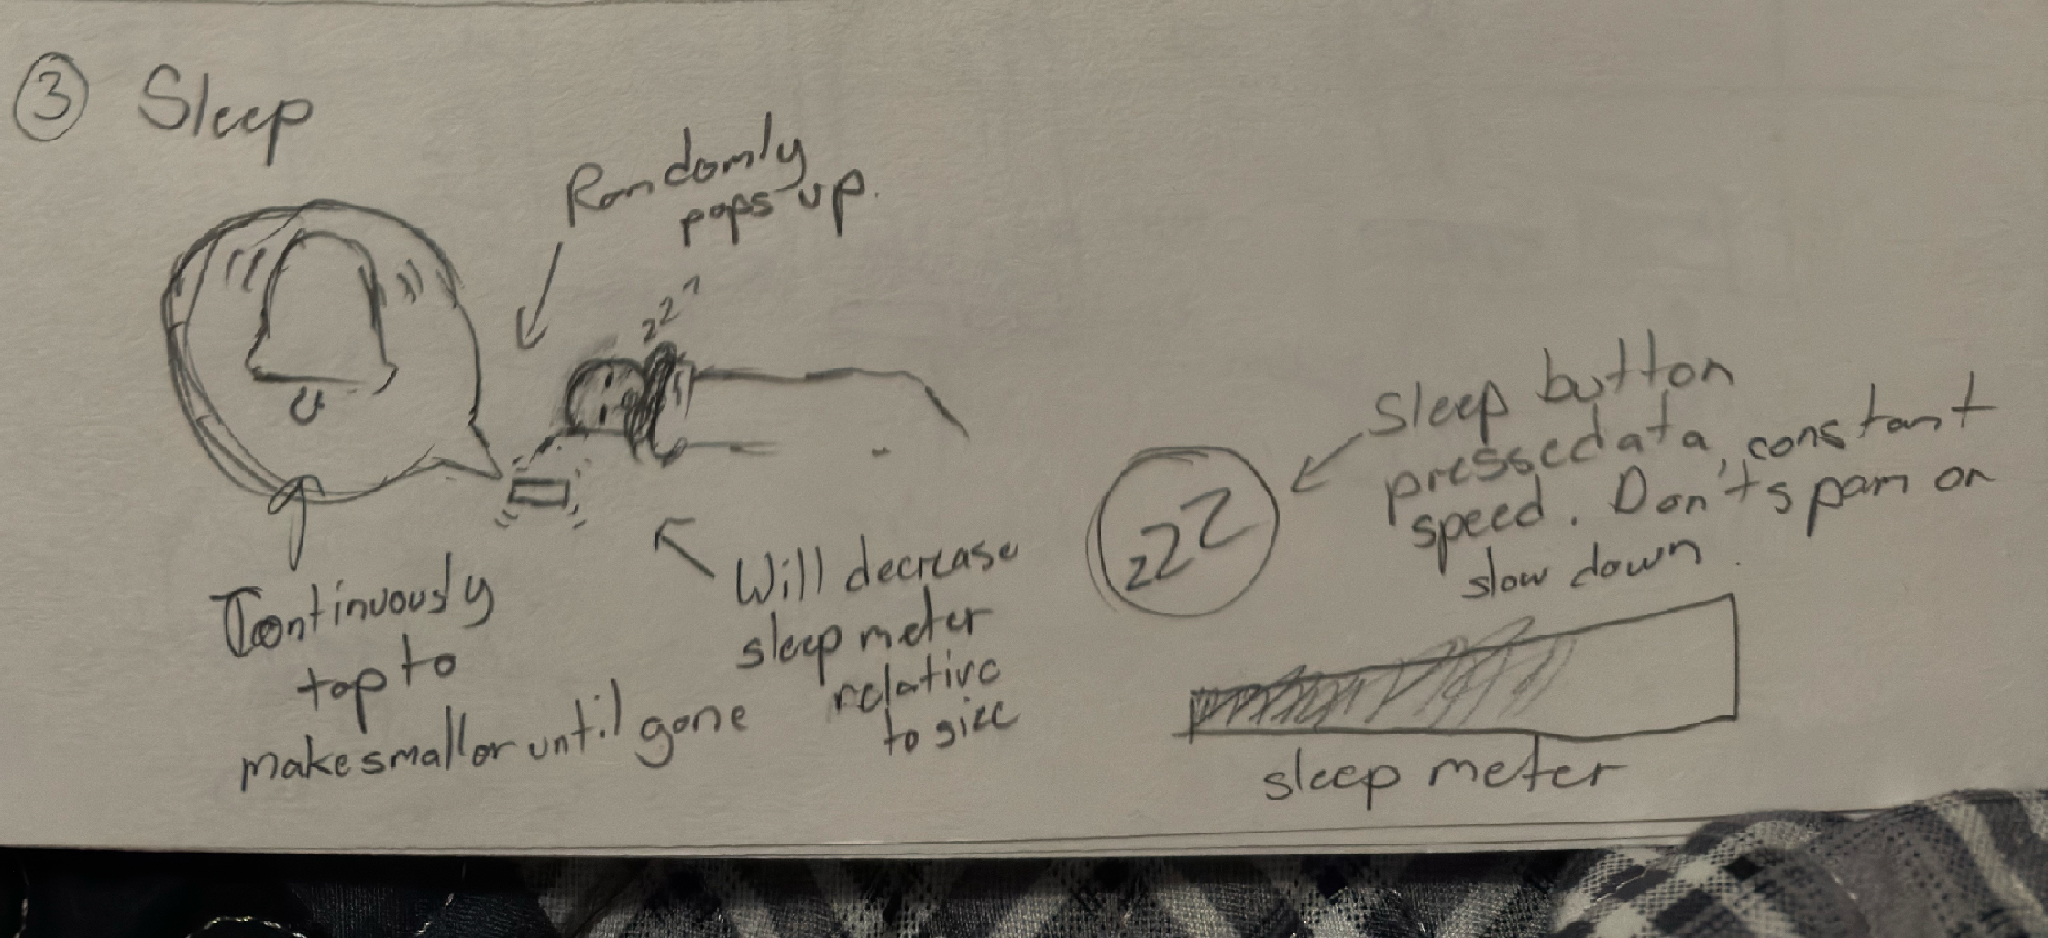 3 Sleep
Randomly
pops up.
zzz
Continuously
tap to
make smaller until gone
Will decrease
sleep meter
relative
to size
Sleep button
pressed at a constant
speed. Don't spam or
slow down.
zzz
sleep meter